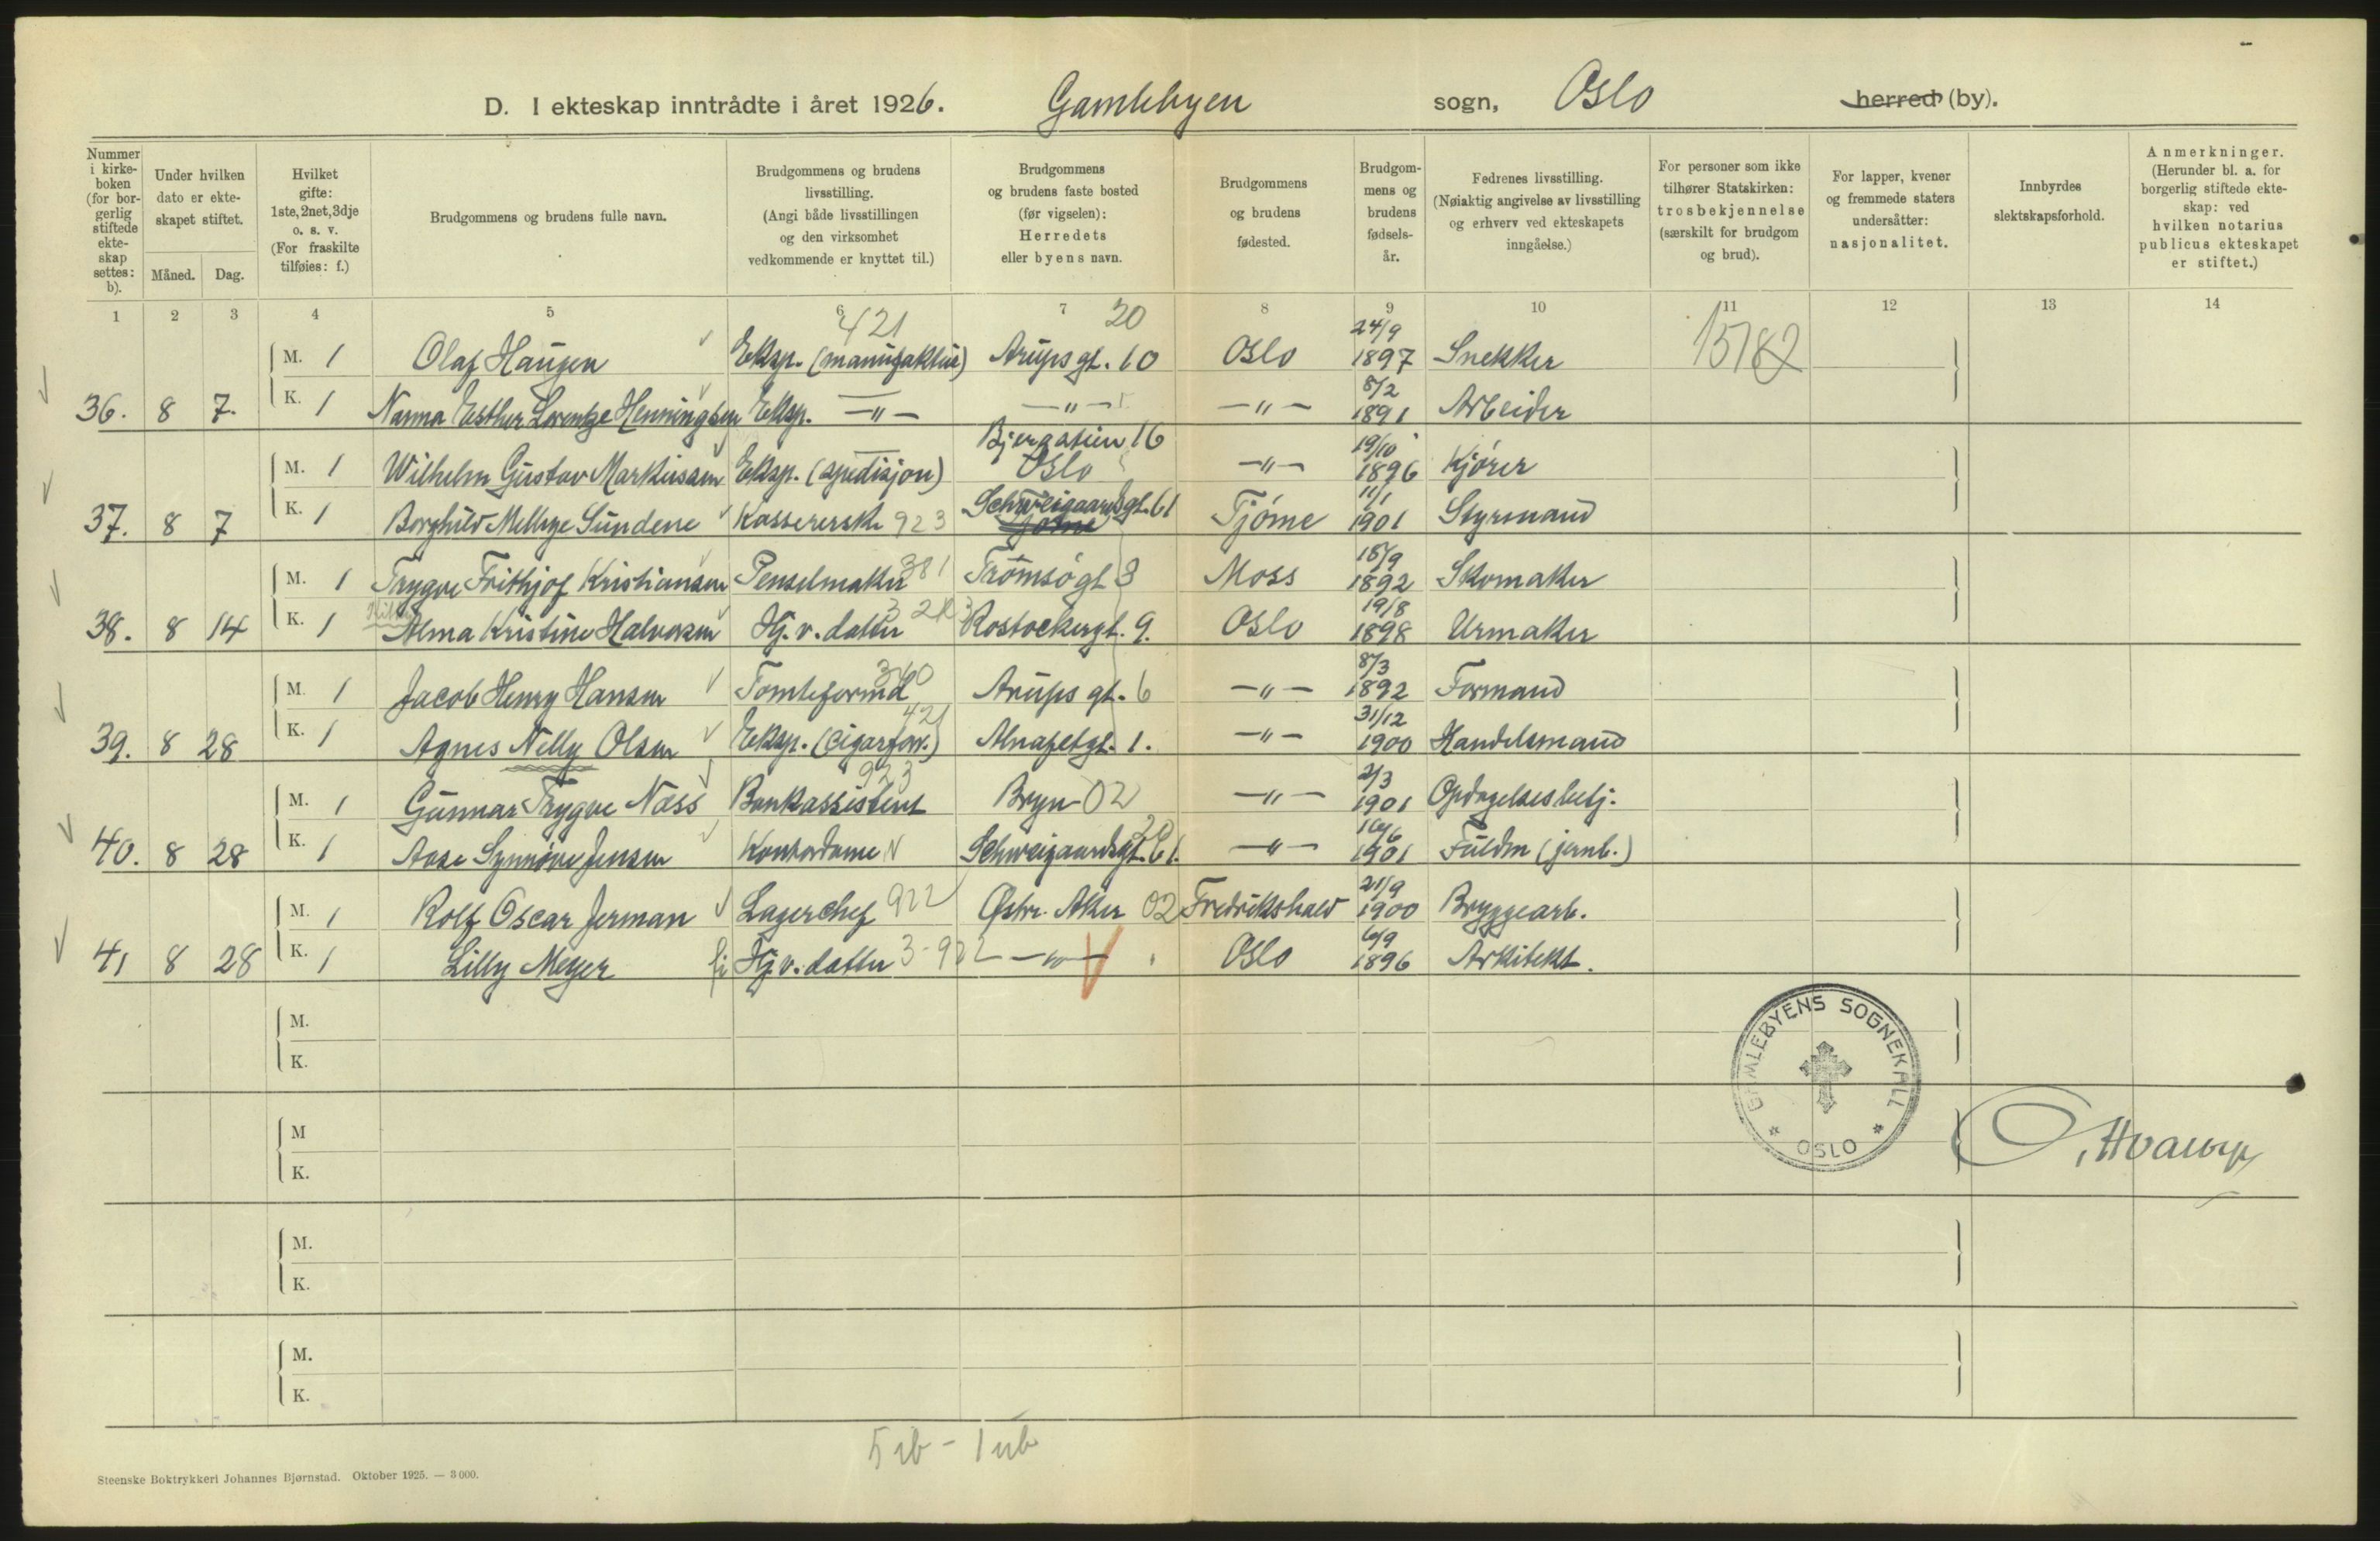 D. I ekteskap inntrådte i året 1926. Gamlebyen sogn, Oslo herred (by).
Nummer i kirkeboken (for borgerlig stiftede ekteskap settes: b).
Under hvilken dato er ekteskapet stiftet.
Måned. Dag.
Hvilket gifte: 1ste, 2net, 3dje o. s. v. (For fraskilte tilføies: f.)
Brudgommens og brudens fulle navn.
Brudgommens og brudens livsstilling. (Angi både livsstillingen og den virksomhet vedkommende er knyttet til.)
Brudgommens og brudens faste bosted (før vigselen): Herredets eller byens navn.
Brudgommens og brudens fødested.
Brudgommens og brudens fødselsår.
Fedrenes livsstilling. (Nøiaktig angivelse av livsstilling og erhverv ved ekteskapets inngåelse.)
For personer som ikke tilhører Statskirken: trosbekjennelse (særskilt for brudgom og brud).
For lapper, kvener og fremmede staters undersåtter: nasjonalitet.
Innbyrdes slektskapsforhold.
Anmerkninger. (Herunder bl. a. for borgerlig stiftede ekteskap: ved hvilken notarius publicus ekteskapet er stiftet.)
1 2 3 4 5 6 7 8 9 10 11 12 13 14
421 20
M. 1 Olaf Haugen Eksp. (manufaktur) Arups gt. 10 Oslo 24/9 1897 Snekker 15782
36. 8 7. K. 1 Nanna Esther Lorentze Henningsen Eksp. —"— —"— —"— 8/2 1891 Arbeider
M. 1 Wilhelm Gustav Markussen Eksp. (spedisjon) Bjergatien 16 Oslo —"— 19/10 1896 Kjører
37. 8 7 K. 1 Borghild Mellye Sundene Kassererske 923 Schweigaardsgt. 61 Tjöme 11/1 1901 Styrmand
M. 1 Trygve Frithjof Kristiansen Penselmaker 381 Tromsögt 3 Moss 18/9 1892 Skomaker
38. 8 14 K. 1 Alma Kristine Halvorsen Hj. v. datter Rostockergt. 9. Oslo 19/8 1898 Urmaker
M. 1 Jacob Henry Hansen Tomteformd 340 Arups gt. 6 —"— 8/3 1892 Formand
39. 8 28 K. 1 Agnes Nelly Olsen Eksp. (cigarforr.) 421 Alnafetgt. 1. —"— 31/12 1900 Handelsmand
M. 1 Gunnar Trygve Næss Bankassistent 923 Bryn 02 —"— 2/3 1901 Opdagelsesbetj.
40. 8 28 K. 1 Aase Synnöve Jensen Kontordame Schweigaardsgt. 61. 20 —"— 16/6 1901 Fuldm (jernb.)
M. 1 Rolf Oscar Jerman Lagerchef 922 Østr. Aker 02 Fredrikshald 21/9 1900 Bryggearb.
41 8 28 K. 1 Lilly Meyer Hj. v. datter 3-922 —"— Oslo 6/9 1896 Arkitekt.
M.
K.
M
K.
M.
K.
M.
K.
GAMLEBYENS SOGNEKALL * OSLO *
5 ib - 1 ub
Steenske Boktrykkeri Johannes Bjørnstad. Oktober 1925. — 3 000.